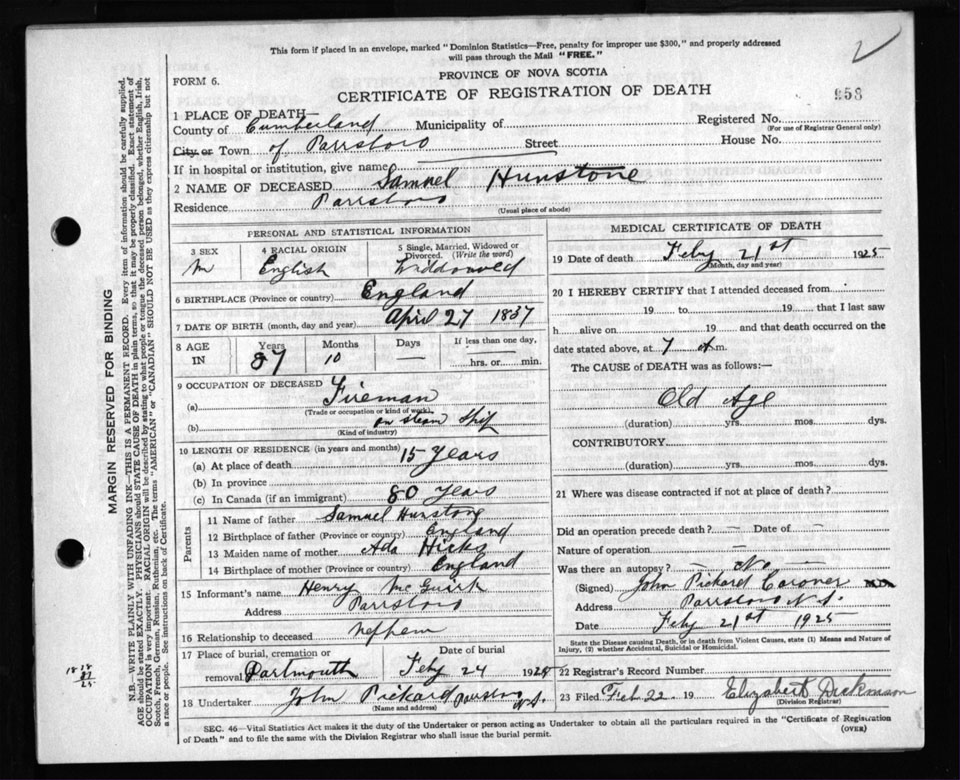 2
This form if placed in an envelope, marked "Dominion Statistics—Free, penalty for improper use $300," and properly addressed
will pass through the Mail "FREE."
FORM 6.
PROVINCE OF NOVA SCOTIA
CERTIFICATE OF REGISTRATION OF DEATH
958
1 PLACE OF DEATH—
County of Cumberland Municipality of
Registered No.
(For use of Registrar General only)
City or Town of Parrsboro Street House No.
If in hospital or institution, give name
2 NAME OF DECEASED Samuel Hunstone
Residence Parrsboro
(Usual place of abode)
PERSONAL AND STATISTICAL INFORMATION
3 SEX
M
4 RACIAL ORIGIN
English
5 Single, Married, Widowed or
Divorced. (Write the word)
Widdowed
6 BIRTHPLACE (Province or country) England
7 DATE OF BIRTH (month, day and year) April 27 1837
8 AGE
IN
Years
87
Months
10
Days
—
If less than one day,
hrs. or min.
9 OCCUPATION OF DECEASED
(a) Fireman
(Trade or occupation or kind of work)
(b) on Steam Ship
(Kind of industry)
10 LENGTH OF RESIDENCE (in years and months)
(a) At place of death 15 years
(b) In province
(c) In Canada (if an immigrant) 80 years
Parents
11 Name of father Samuel Hunstone
12 Birthplace of father (Province or country) England
13 Maiden name of mother Ada Hicks
14 Birthplace of mother (Province or country) England
15 Informant's name Henry McGuirk
Address Parrsboro
16 Relationship to deceased nephew
17 Place of burial, cremation or
removal Dartmouth
Date of burial
Feby 24 1925
18 Undertaker John Pickard Parrsboro N.S.
(Name and address)
MEDICAL CERTIFICATE OF DEATH
19 Date of death Feby 21st 1925
(Month, day and year)
20 I HEREBY CERTIFY that I attended deceased from
19 to 19 that I last saw
h alive on 19 and that death occurred on
date stated above, at 7 a.m.
The CAUSE of DEATH was as follows:—
Old Age
(duration) yrs. mos. dys.
CONTRIBUTORY
(duration) yrs. mos. dys.
21 Where was disease contracted if not at place of death?
Did an operation precede death? — Date of —
Nature of operation —
Was there an autopsy? — No —
(Signed) John Pickard Coroner M.D.
Address Parrsboro N.S.
Date Feby 21st 1925
State the Disease causing Death, or in death from Violent Causes, state (1) Means and Nature of
Injury, (2) whether Accidental, Suicidal or Homicidal.
22 Registrar's Record Number
23 Filed Feb 22. 19 Elizabeth Dickinson
(Division Registrar)
SEC. 46—Vital Statistics Act makes it the duty of the Undertaker or person acting as Undertaker to obtain all the particulars required in the "Certificate of Registration
of Death" and to file the same with the Division Registrar who shall issue the burial permit.
(OVER)
MARGIN RESERVED FOR BINDING
N.B.—WRITE PLAINLY WITH UNFADING INK—THIS IS A PERMANENT RECORD. Every item of information should be carefully supplied.
AGE should be stated EXACTLY. PHYSICIANS should STATE CAUSE OF DEATH in plain terms, so that it may be properly classified. Exact statement of
OCCUPATION is very important. RACIAL ORIGIN will be described by stating to what people or tongue the deceased person belonged, whether English, Irish,
Scotch, French, German, Russian, Ruthenian, etc. The terms "AMERICAN" or "CANADIAN" SHOULD NOT BE USED as they express citizenship but not
a race or people. See instructions on back of Certificate.